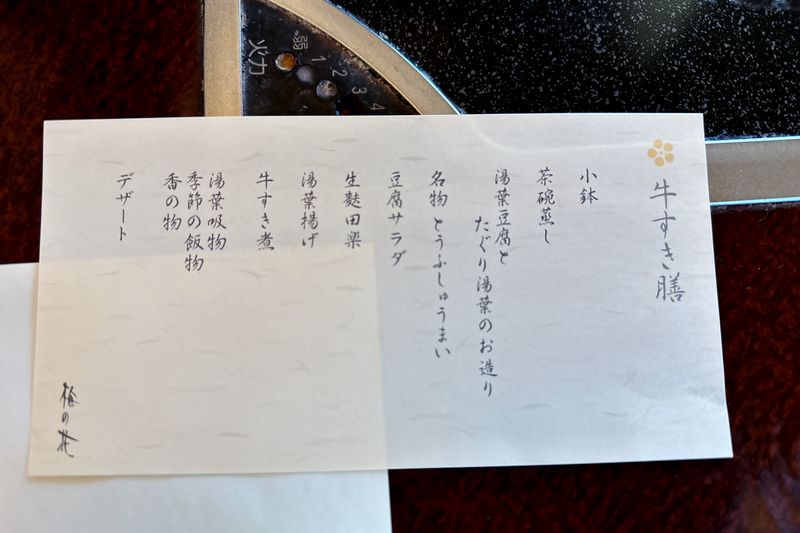 牛すき膳
小鉢
茶碗蒸し
湯葉豆腐と
たぐり湯葉のお造り
名物 とうふしゅうまい
豆腐サラダ
生麩田楽
湯葉揚げ
牛すき煮
湯葉吸物
季節の飯物
香の物
デザート
梅の花
火力
弱
1
2
3
4